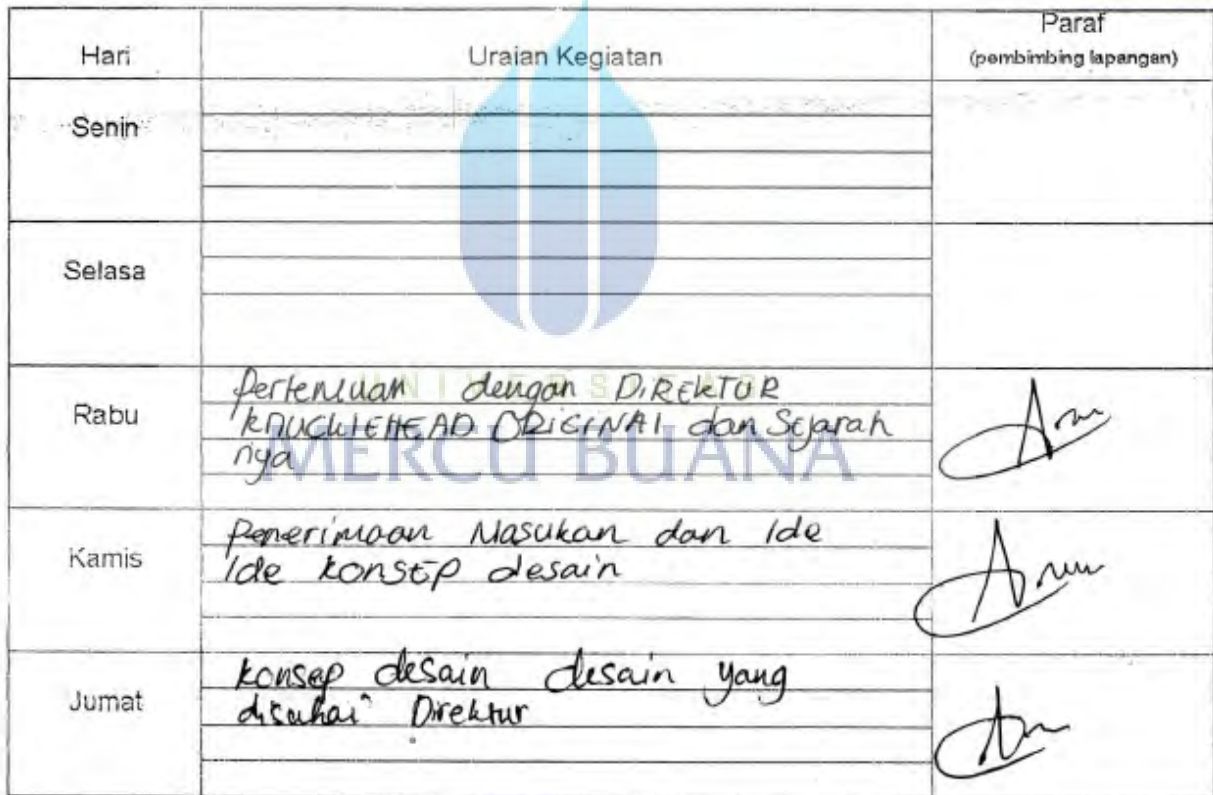 Hari Uraian Kegiatan Paraf
(pembimbing lapangan)
Senin
Selasa
UNIVERSITAS
MERCU BUANA
Rabu
Pertemuan dengan DiREKTUR
KNUCKLEHEAD ORIGINAL dan Sejarah
nya
Kamis
Penerimaan Masukan dan Ide
Ide konsep desain
Jumat
konsep desain desain yang
disukai Direktur